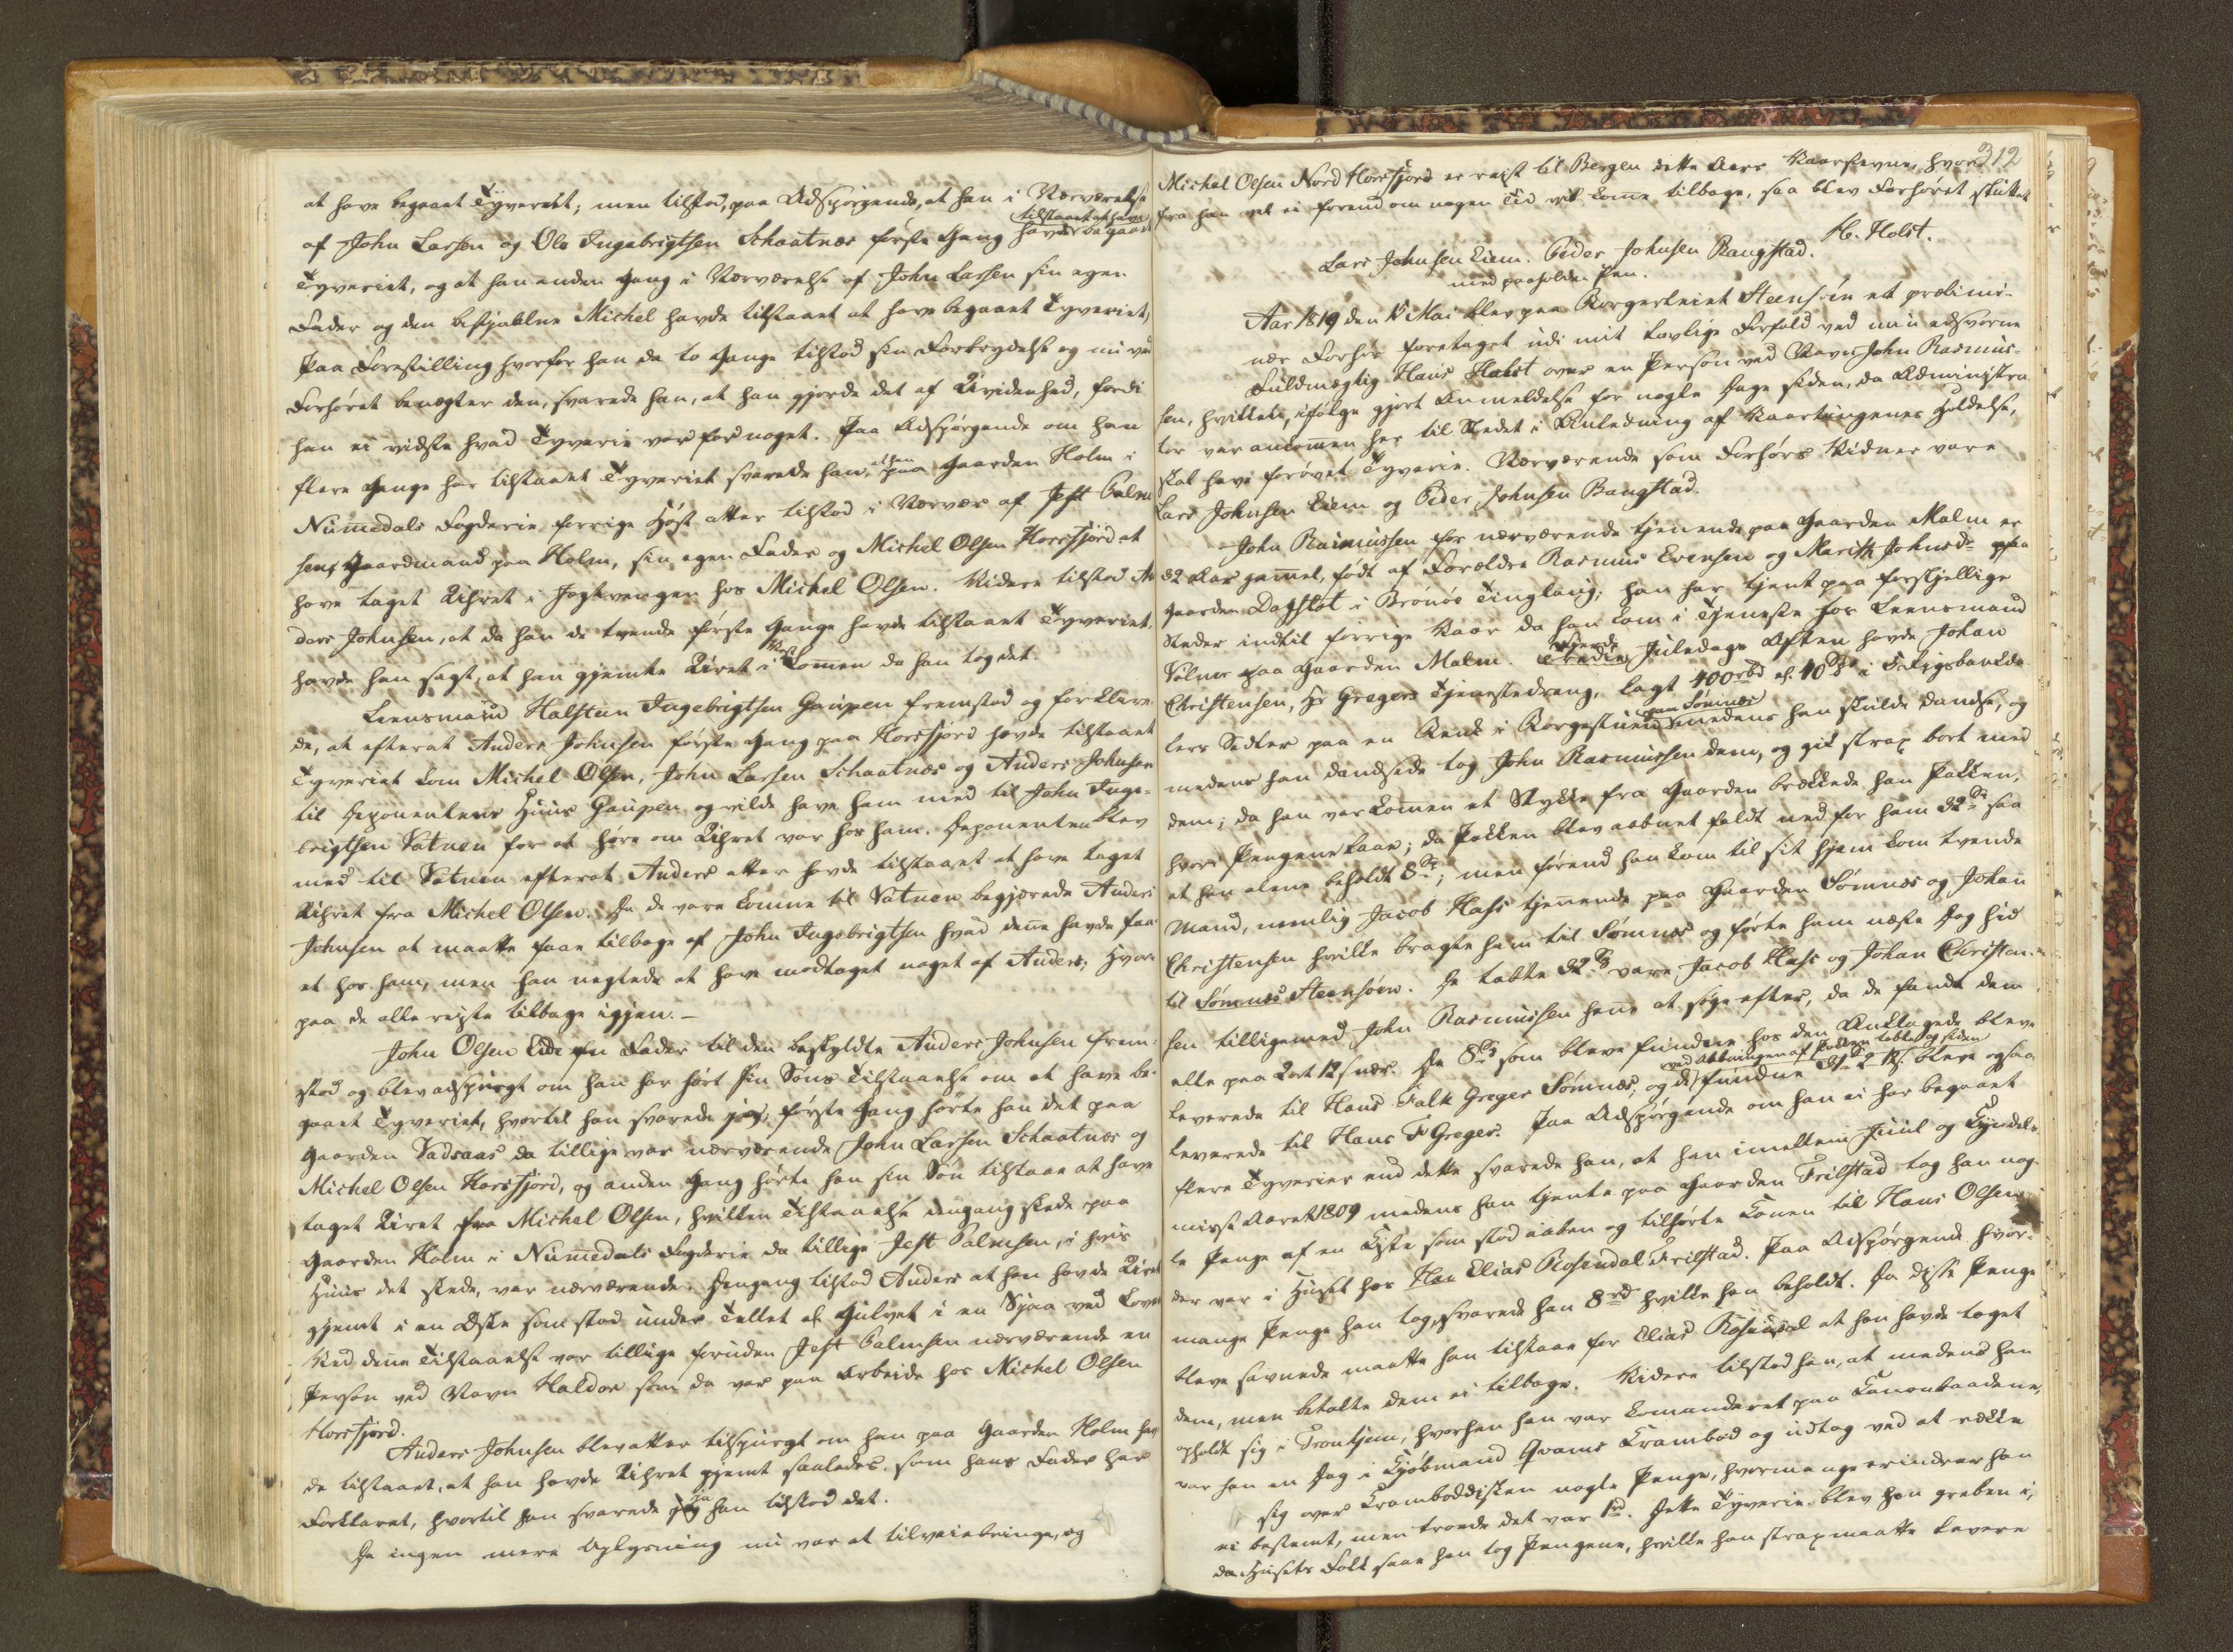 at have begaaet Tyveriet; men tilstod, paa Adspørgende, at han i Nærværelse
af John Larsen og Ole Ingebrigtsen Schaatnæs første Gang tilstaaet at have havde begaaet
Tyveriet, og at han anden Gang i Nærværelse af John Larsen sin egen
Fader og den bestjaalne Michel havde tilstaaet at have begaaet Tyveriet,
Paa Forestilling hvorfor han da to Gange tilstod sin Forbrydelse og nu ved
Forhøret benægter den, svarede han, at han gjorde det af Uvidenhed, fordi
han ei vidste hvad Tyverie var for noget. Paa Adspørgende om han
flere Gange har tilstaaet Tyveriet svarede han, at han paa Gaarden Holm i
Nummedals Fogderie forrige Høst atter tilstod i Nærvær af Jest Palm
sen, Gaardmand paa Holm, sin egen Fader og Michel Olsen Horsfjord at
have taget Uhret i Jagtvengen hos Michel Olsen. Videre tilstod An
ders Johnsen, at da han de tvende første Gange havde tilstaaet Tyveriet,
havde han sagt, at han gjemte Uret i Lommen da han tog det.
Leensmand Halsteen Ingebrigtsen Gaupen fremstod og forklare
de, at efterat Anders Johnsen første Gang paa Horsfjord havde tilstaaet
Tyveriet kom Michel Olsen, John Larsen Schaatnæs og Anders Johnsen
til Deponentens Huus Gaupen og vilde have ham med til John Inge-
brigtsen Vatnen for at høre om Uhret var hos ham. Deponenten blev
med til Vatnen efterat Anders atter havde tilstaaet at have taget
Uhret fra Michel Olsen. Da de vare komne til Vatnen begjærede Anders
Johnsen at maatte faae tilbage af John Ingebrigtsen hvad denne havde faa-
et hos ham, men han negtede at have modtaget noget af Anders; hvor-
paa de alle reiste tilbage igjen. –
John Olsen Eide en Fader til den beskyldte Anders Johnsen frem-
stod og blev adspurgt om han har hørt sin Søns Tilstaaelse om at have be-
gaaet Tyveriet, hvortil han svarede jo, første Gang hørte han det paa
Gaarden Vadsaas da tillige var nærværende John Larsen Schaatnæs og
Michel Olsen Horsfjord, og anden Gang hørte han sin Søn tilstaae at have
taget Uret fra Michel Olsen, hvilken Tilstaaelse dengang skede paa
Gaarden Holm i Nummedals Fogderie da tillige Jest Palmsen, i hvis
Huus det skede, var nærværende. Dengang tilstod Anders at han havde Uret
gjemt i en Æske som stod under Tellet af Gulvet i en Sjaa ved Lovet
Ved denne Tilstaaelse var tillige foruden Jest Palmsen nærværende en
Person ved Navn Haldor som da var paa Arbeide hos Michel Olsen
Horsfjord.
Anders Johnsen blev atter tilspurgt om han paa Gaarden Holm hav
de tilstaaet, at han havde Uhret gjemt saaledes, som hans Fader har
Forklaret, hvortil han svarede ja han tilstod det.
Da ingen mere Oplysning nu var at tilveiebringe, og
312
Michel Olsen Nord Horsfjord er reist til Bergen dette Aars Vaarstevne, hvor
fra han vel ei førend om nogen Tid vil komme tilbage, saa blev Forhøret sluttet
H. Holst.
Lars Johnsen Eiem. Peder Johnsen Rangstad.
med paaholden Pen.
Aar 1819 den 15 Mai blev paa Borgerleiet Steensøen et prelimi-
nær Forhør foretaget udi mit lovlige Forfald ved min edsvorne
Fuldmægtig Hans Holst over en Person ved Navn John Rasmus-
sen, hvilken, ifølge gjort Anmeldelse for nogle Dage siden, da Administra
tor var ankommen her til Stedet i Anledning af Vaartingenes Holdelse,
skal have forøvet Tyverie. Nærværende som Forhørs Vidner vare
Lars Johnsen Eiem og Peder Johnsen Rangstad.
John Rasmussen for nærværende tjenende paa Gaarden Malm er
32 Aar gammel, født af Forældre Rasmus Evensen og Marith Johnsdr paa
Gaarden Dagslot i Brønøe Tinglaug; han har tjent paa forskjellige
Steder indtil forrige Vaar da han kom i Tjeneste hos Leensmand
Vølner paa Gaarden Malm. Tredie Juledags Aften havde Johan
Christensen, Hr Gregers Tjenestedreng, lagt 400 rbd el. 40 Spd i Rigsbankda
lers Sedler paa en Bænk i Borgestuen paa Sømnæs medens han skulde dandse, og
medens han dandsede tog John Rasmussen dem, og gik strax bort med
dem; da han var kommen et Stykke fra Gaarden brækkede han Pakken,
hvori Pengene laae; da Pakken blev aabnet faldt ned for ham 32 Spd saa
at han alene beholdt 8 Spd; men førend han kom til sit Hjem kom tvende
Mænd, nemlig Jacob Klass tjenende paa Gaarden Sømnæs og Johan
Christensen hvilke bragte ham til Sømnæs og førte ham næste Dag hid
til Sømnæs Steensøen. De tabte 32 Spd vare Jacob Klass og Johan Christen-
sen tilligemed John Rasmussen henne at søge efter, da de fandt dem
alle paa 2 ort 12 s nær. De 8 Spd som bleve fundne hos den Anklagede bleve
leverede til Hans Falk Greger Sømnæs, og de ved Aabningen af Pakken tabte og siden fundne 31 – 2 – 12 s bleve ogsaa
leverede til Hans F Greger. Paa Adspørgende om han ei har begaaet
flere Tyverier end dette svarede han, at han imellem Juul og Kyndels-
misse Aaret 1809 medens han tjente paa Gaarden Trilstad tog han nog-
le Penge af en Kiste som stod aaben og tilhørte Konen til Hans Olsen
der var i Huset hos Elias Rosendal Trilstad. Paa Adspørgende hvor-
mange Penge han tog, svarede han 8 rd hvilke han beholdt. Da disse Penge
bleve savnede maatte han tilstaae for Elias Rosendal at han havde taget
dem, men betalte dem ei tilbage. Videre tilstod han, at medens han
opholdt sig i Trontjem, hvorhen han var komanderet paa Canonbaadene,
var han en Dag i Kjøbmand Qvams Krambod og udtog ved at række
sig over Kramboddisken nogle Penge, hvormange erindrer han
ei bestemt, men troede det var 1 rd. Dette Tyverie blev han greben i,
da Husets Folk saae han tog Pengene, hvilke han strax maatte levere